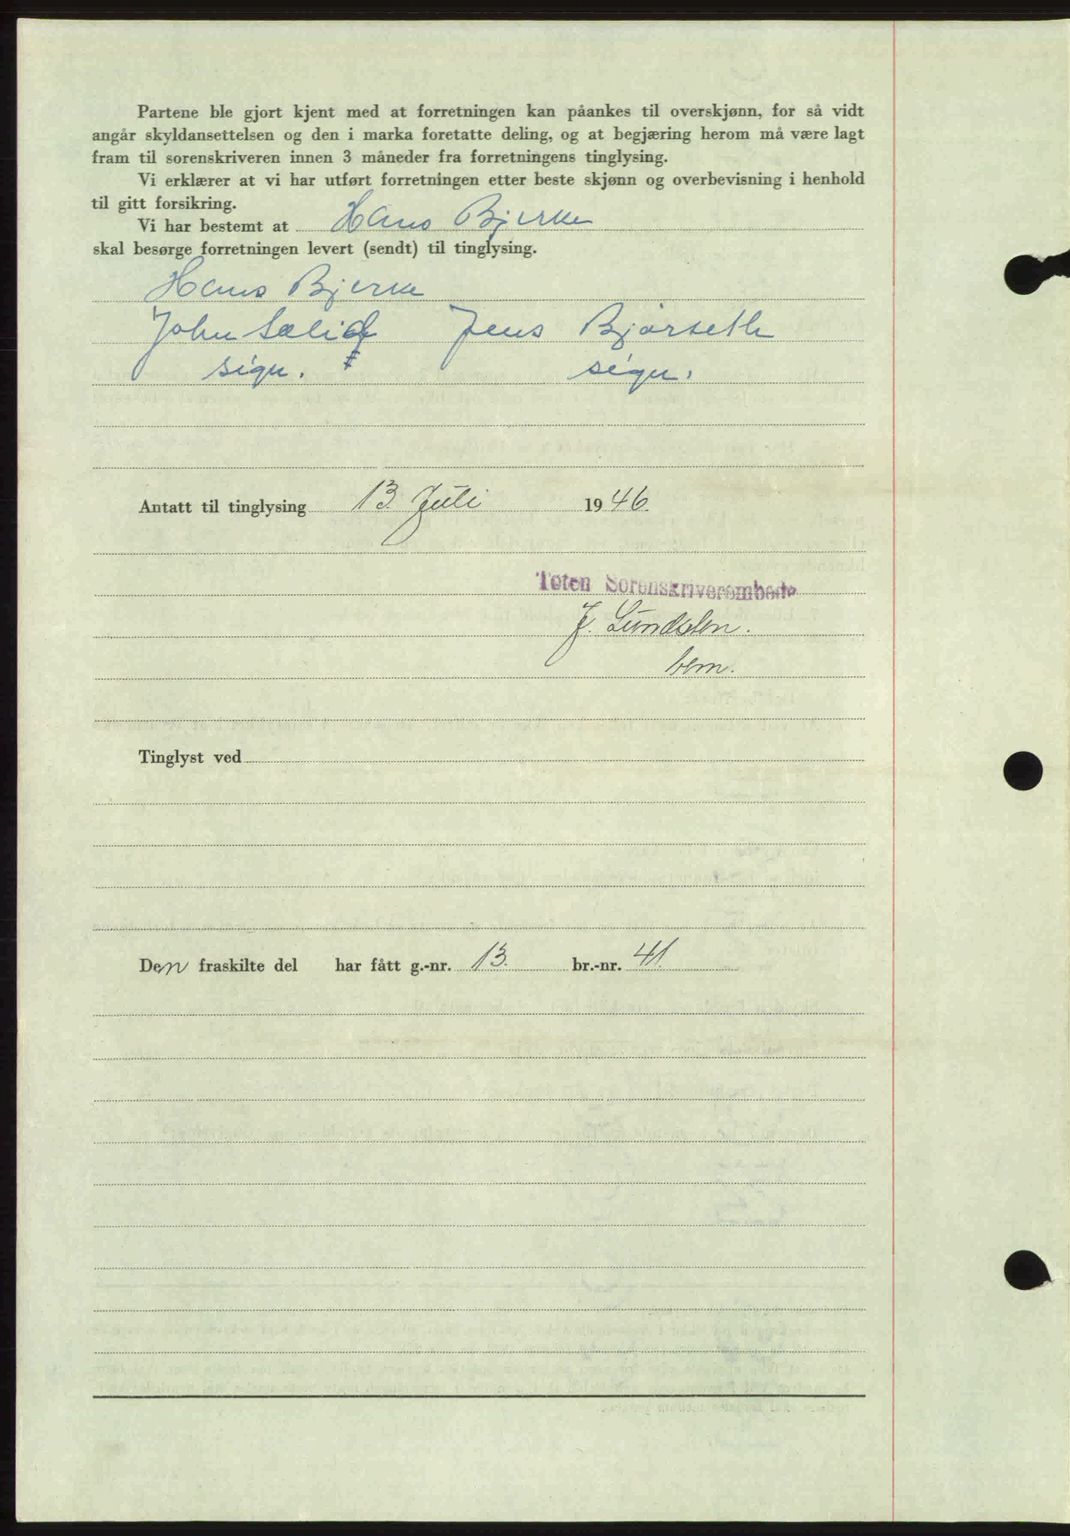 Partene ble gjort kjent med at forretningen kan påankes til overskjønn, for så vidt
angår skyldansettelsen og den i marka foretatte deling, og at begjæring herom må være lagt
fram til sorenskriveren innen 3 måneder fra forretningens tinglysing.
Vi erklærer at vi har utført forretningen etter beste skjønn og overbevisning i henhold
til gitt forsikring.
Vi har bestemt at Hans Bjerke
skal besørge forretningen levert (sendt) til tinglysing.
Hans Bjerke
John Sælid Jens Bjørseth
sign. sign.
Antatt til tinglysing 13. Juli 1946.
Toten Sorenskriverembede
J. Lundsten.
bem.
Tinglyst ved
Den fraskilte del har fått g.-nr. 13. br.-nr. 41.